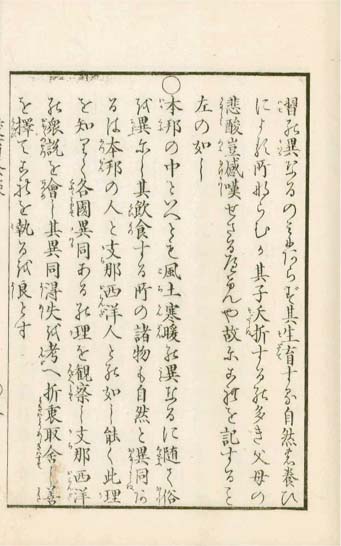 習の異なるのみならず其生育する自然の養ひ
によれる所ならむか其子夭折するの多き父母の
悲酸豈感嘆せざるべけんや故に之を記すること
左の如し
○本邦の中といへども風土寒暖の異なるに随て俗
も異にし其飲食する所の諸物も自然と異同あ
るは本邦の人と支那西洋人との如し能く此理
を知りて各國異同あるの理を観察し支那西洋
の衆説を會し其異同得失を考へ折衷取舎し善
を擇てこれを執るを良とす